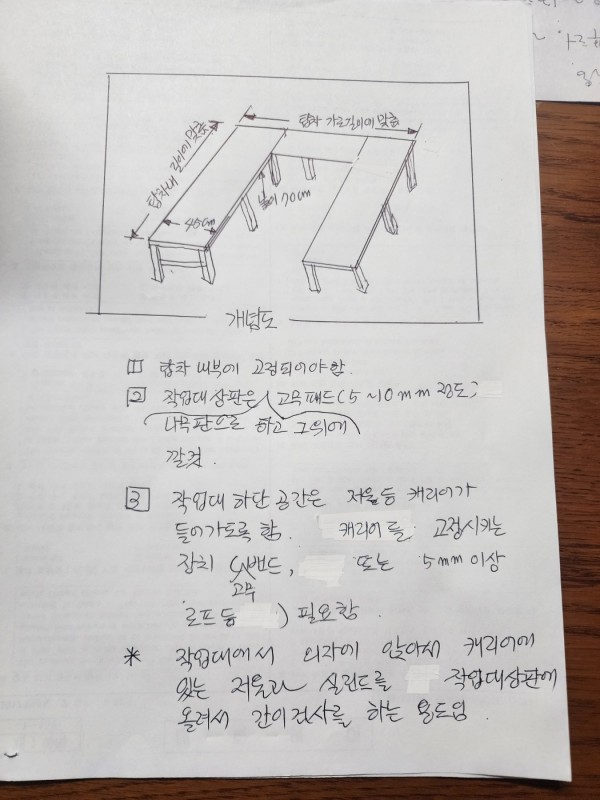 탑차 가로길이에 맞춤
탑차내 길이에 맞춤
45cm
높이 70cm
개념도
1 탑차 내부에 고정되어야 함.
2 작업대 상판은 고무패드(5~10mm 정도)
나무판으로 하고 그위에
깔것.
3 작업대 하단 공간은 저울등 캐리어가
들어가도록 함. 캐리어를 고정시키는
장치 (고무밴드, 또는 5mm 이상
로프등 ) 필요함.
* 작업대에서 의자에 앉아서 캐리어에
있는 저울과 실린드를 작업대상판에
올려서 간이검사를 하는 용도임.